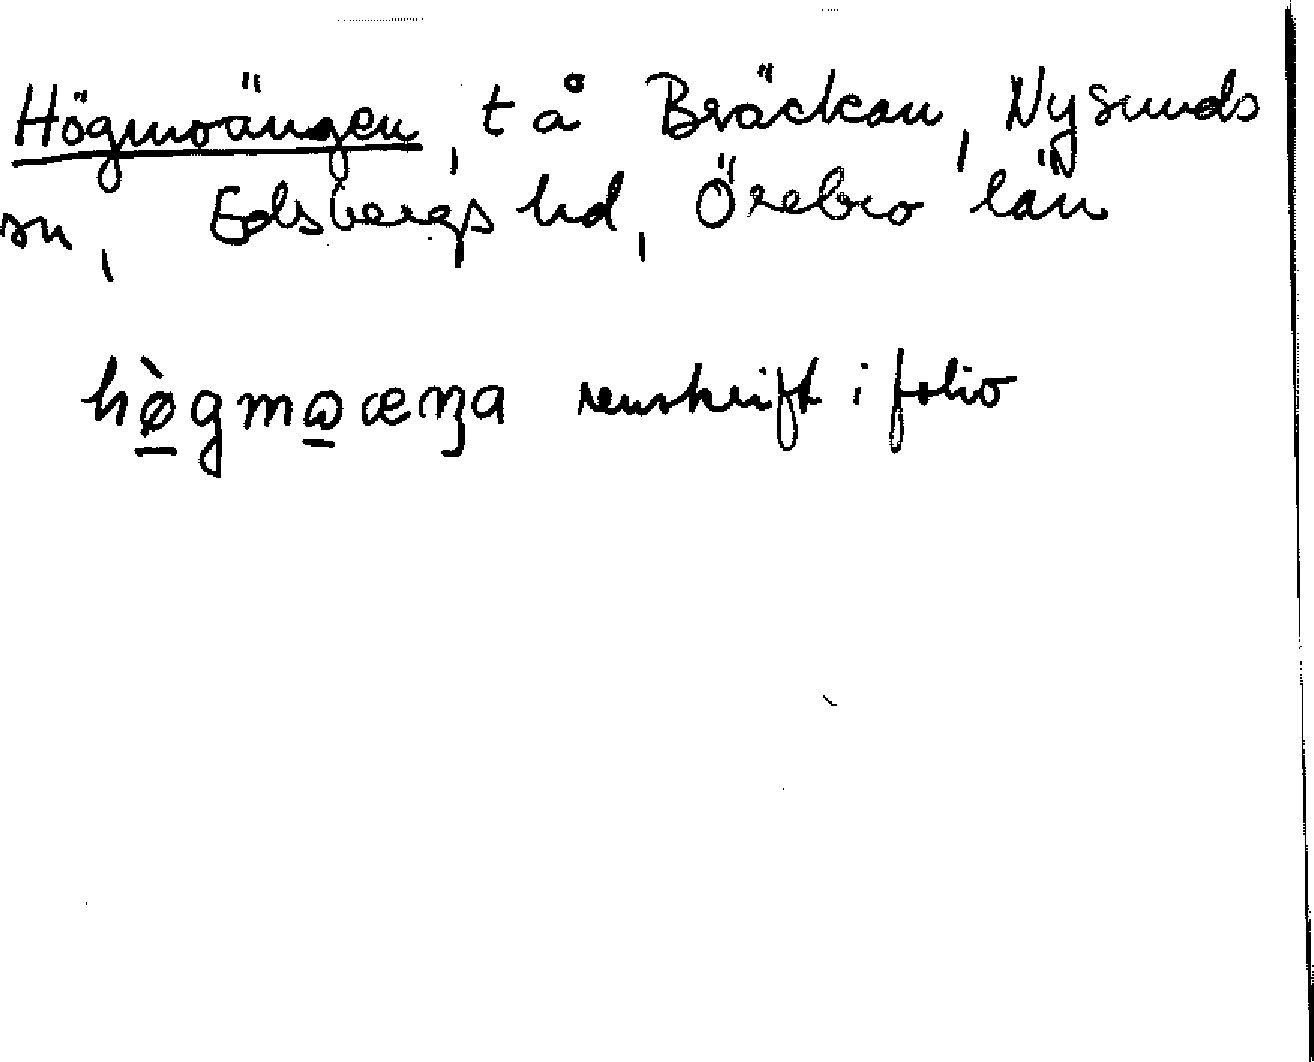 Högmoängen, t å Bräckan, Nysunds
sn, Edsbergs hd, Örebro län
hø̠̀gmɷ̠æŋa renskrift i folio